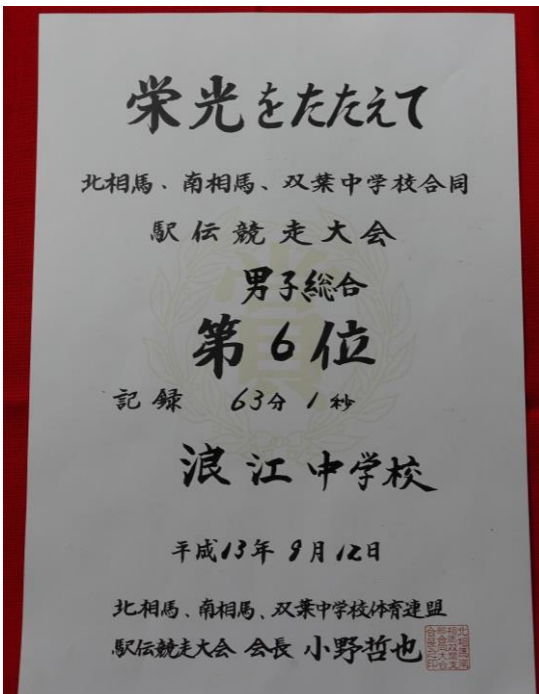 栄光をたたえて
北相馬、南相馬、双葉中学校合同
駅伝競走大会
賞
男子総合
第6位
記録 63分1秒
浪江中学校
平成13年9月12日
北相馬、南相馬、双葉中学校体育連盟
駅伝競走大会 会長 小野哲也